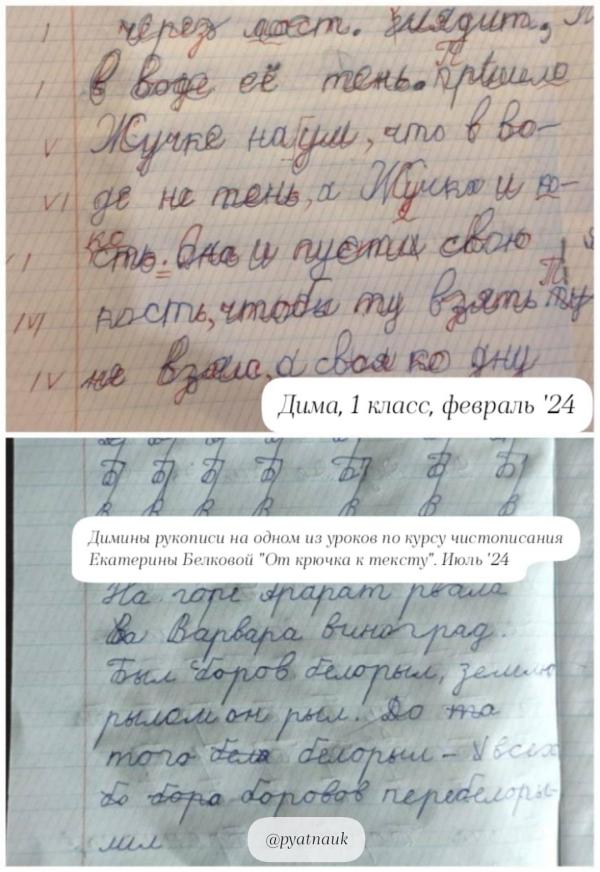 I через мост. Глядит,
I в воде её тень. Пришло
V Жучке на ум, что в во-
VI де не тень, а Жучка и ко-
кость. Она и пусти свою
IVI кость, чтобы ту взять. Ту
IV не взяла, а своя ко дну
Дима, 1 класс, февраль '24
Б Б Б Б Б Б Б
Димины рукописи на одном из уроков по курсу чистописания
Екатерины Белковой "От крючка к тексту". Июль '24
На горе Арарат рвала
Ва Варвара виноград.
Был боров белорыл, землю
рылом он рыл. До та
того бела белорыл - всех
бо бора боровов перебелоры-
лил
@pyatnauk